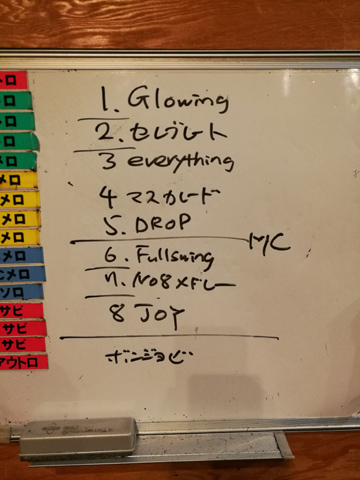 1. Glowing
2. セレブレート
3 everything
4 マスカレード
5. DROP
MC
6. Fullswing
7. No8メドレー
8 JOY
ボンジョビ
トロ
ロ
ロ
ロ
メロ
メロ
メロ
メロ
メロ
Cメロ
ソロ
サビ
サビ
サビ
アウトロ